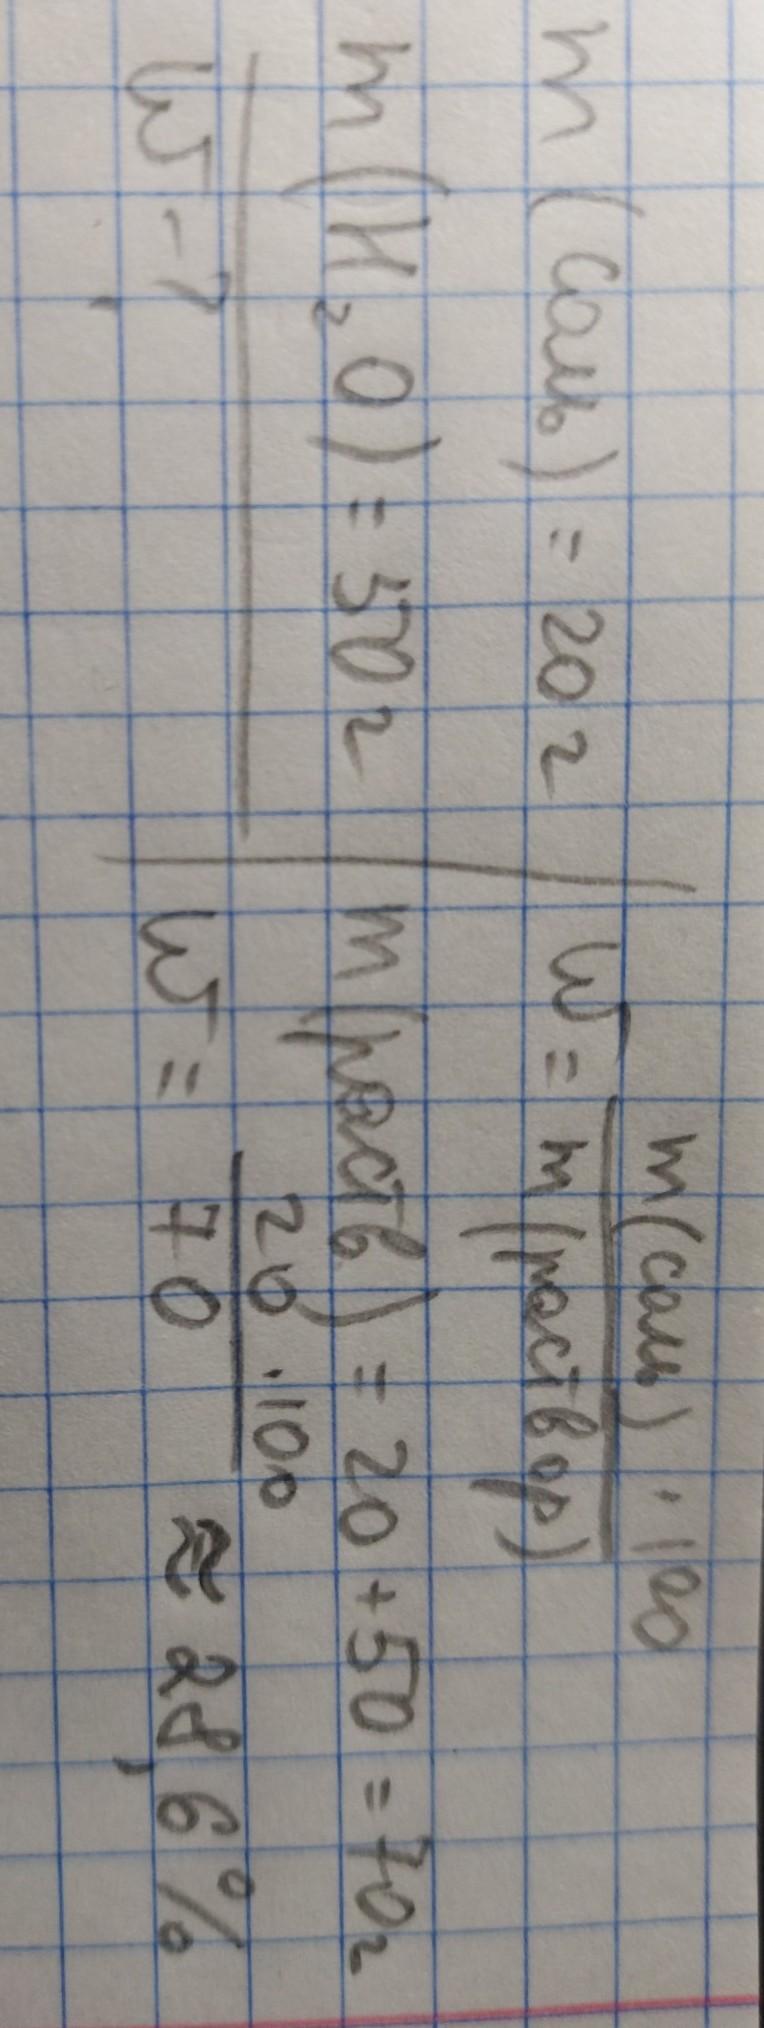 m (соль) = 20 г
m (H₂O) = 50 г
W - ?
W = m(соль) · 100 / m(раствор)
m(раств) = 20 + 50 = 70 г
W = 20 · 100 / 70 ≈ 28,6 %